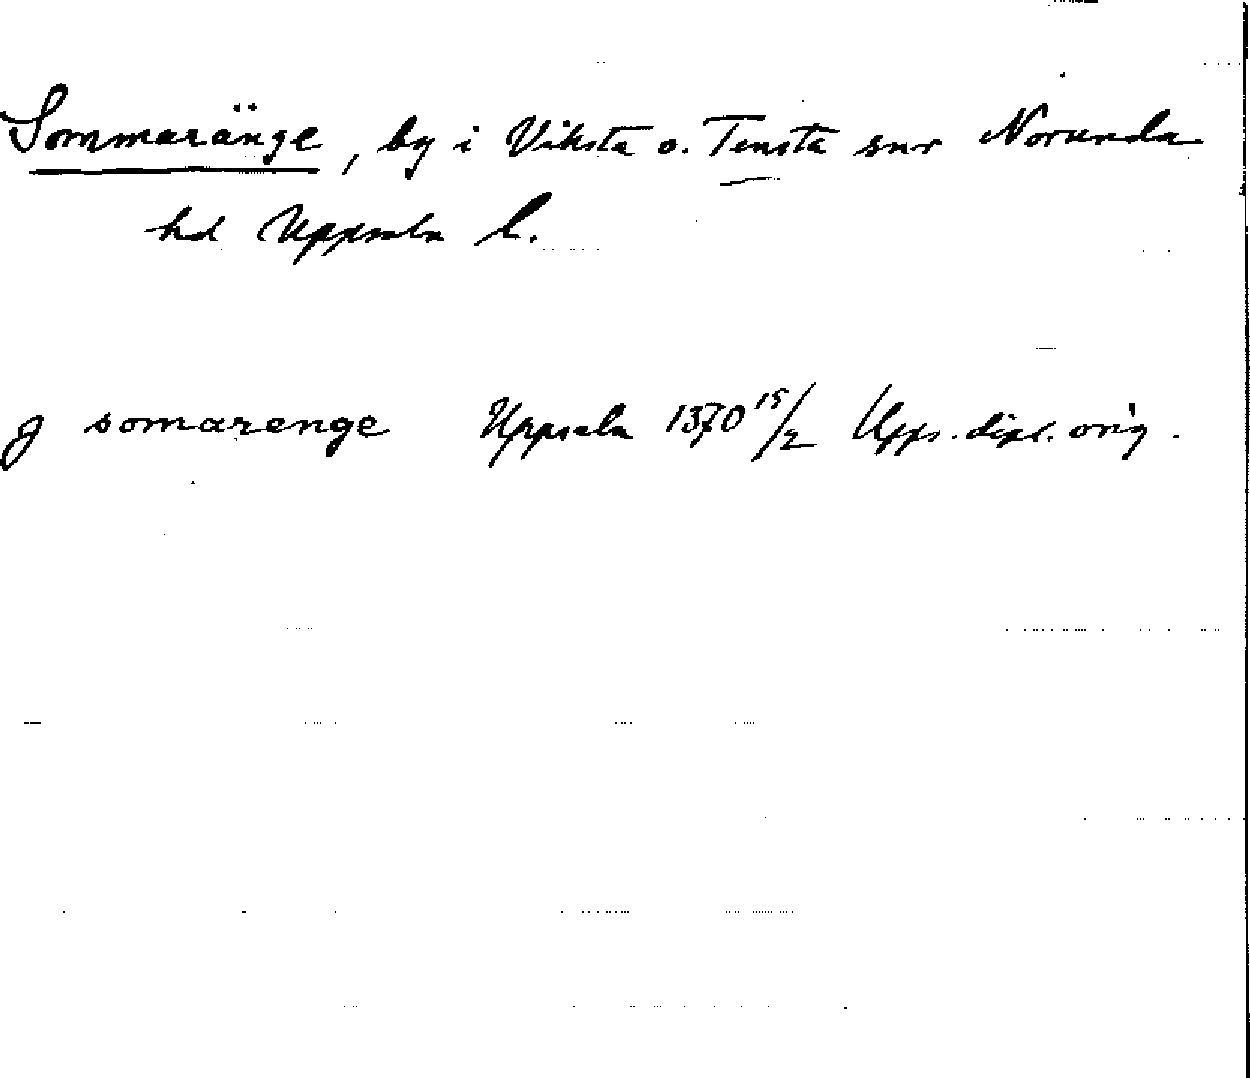 Sommaränge, by i Viksta o. Tensta snr Norunda
hd Uppsala l.
J somarenge Uppsala 1370 15/2 Upps. dipl. orig.